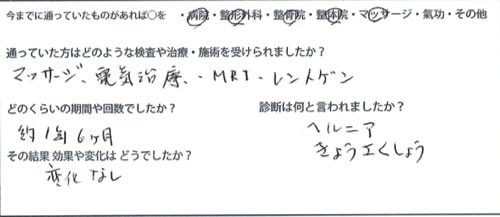 今までに通っていたものがあれば○を ・病院・整形外科・整骨院・整体院・マッサージ・氣功・その他
通っていた方はどのような検査や治療・施術を受けられましたか？
マッサージ、電気治療、・MRI・レントゲン
どのくらいの期間や回数でしたか？ 診断は何と言われましたか？
約1年6ヶ月 ヘルニア
その結果 効果や変化は どうでしたか？ きょうさくしょう
変化なし